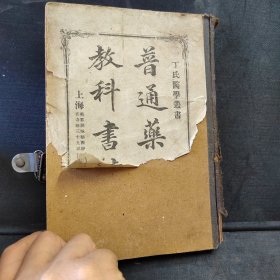 丁氏醫學叢書
普通藥
教科書
上海